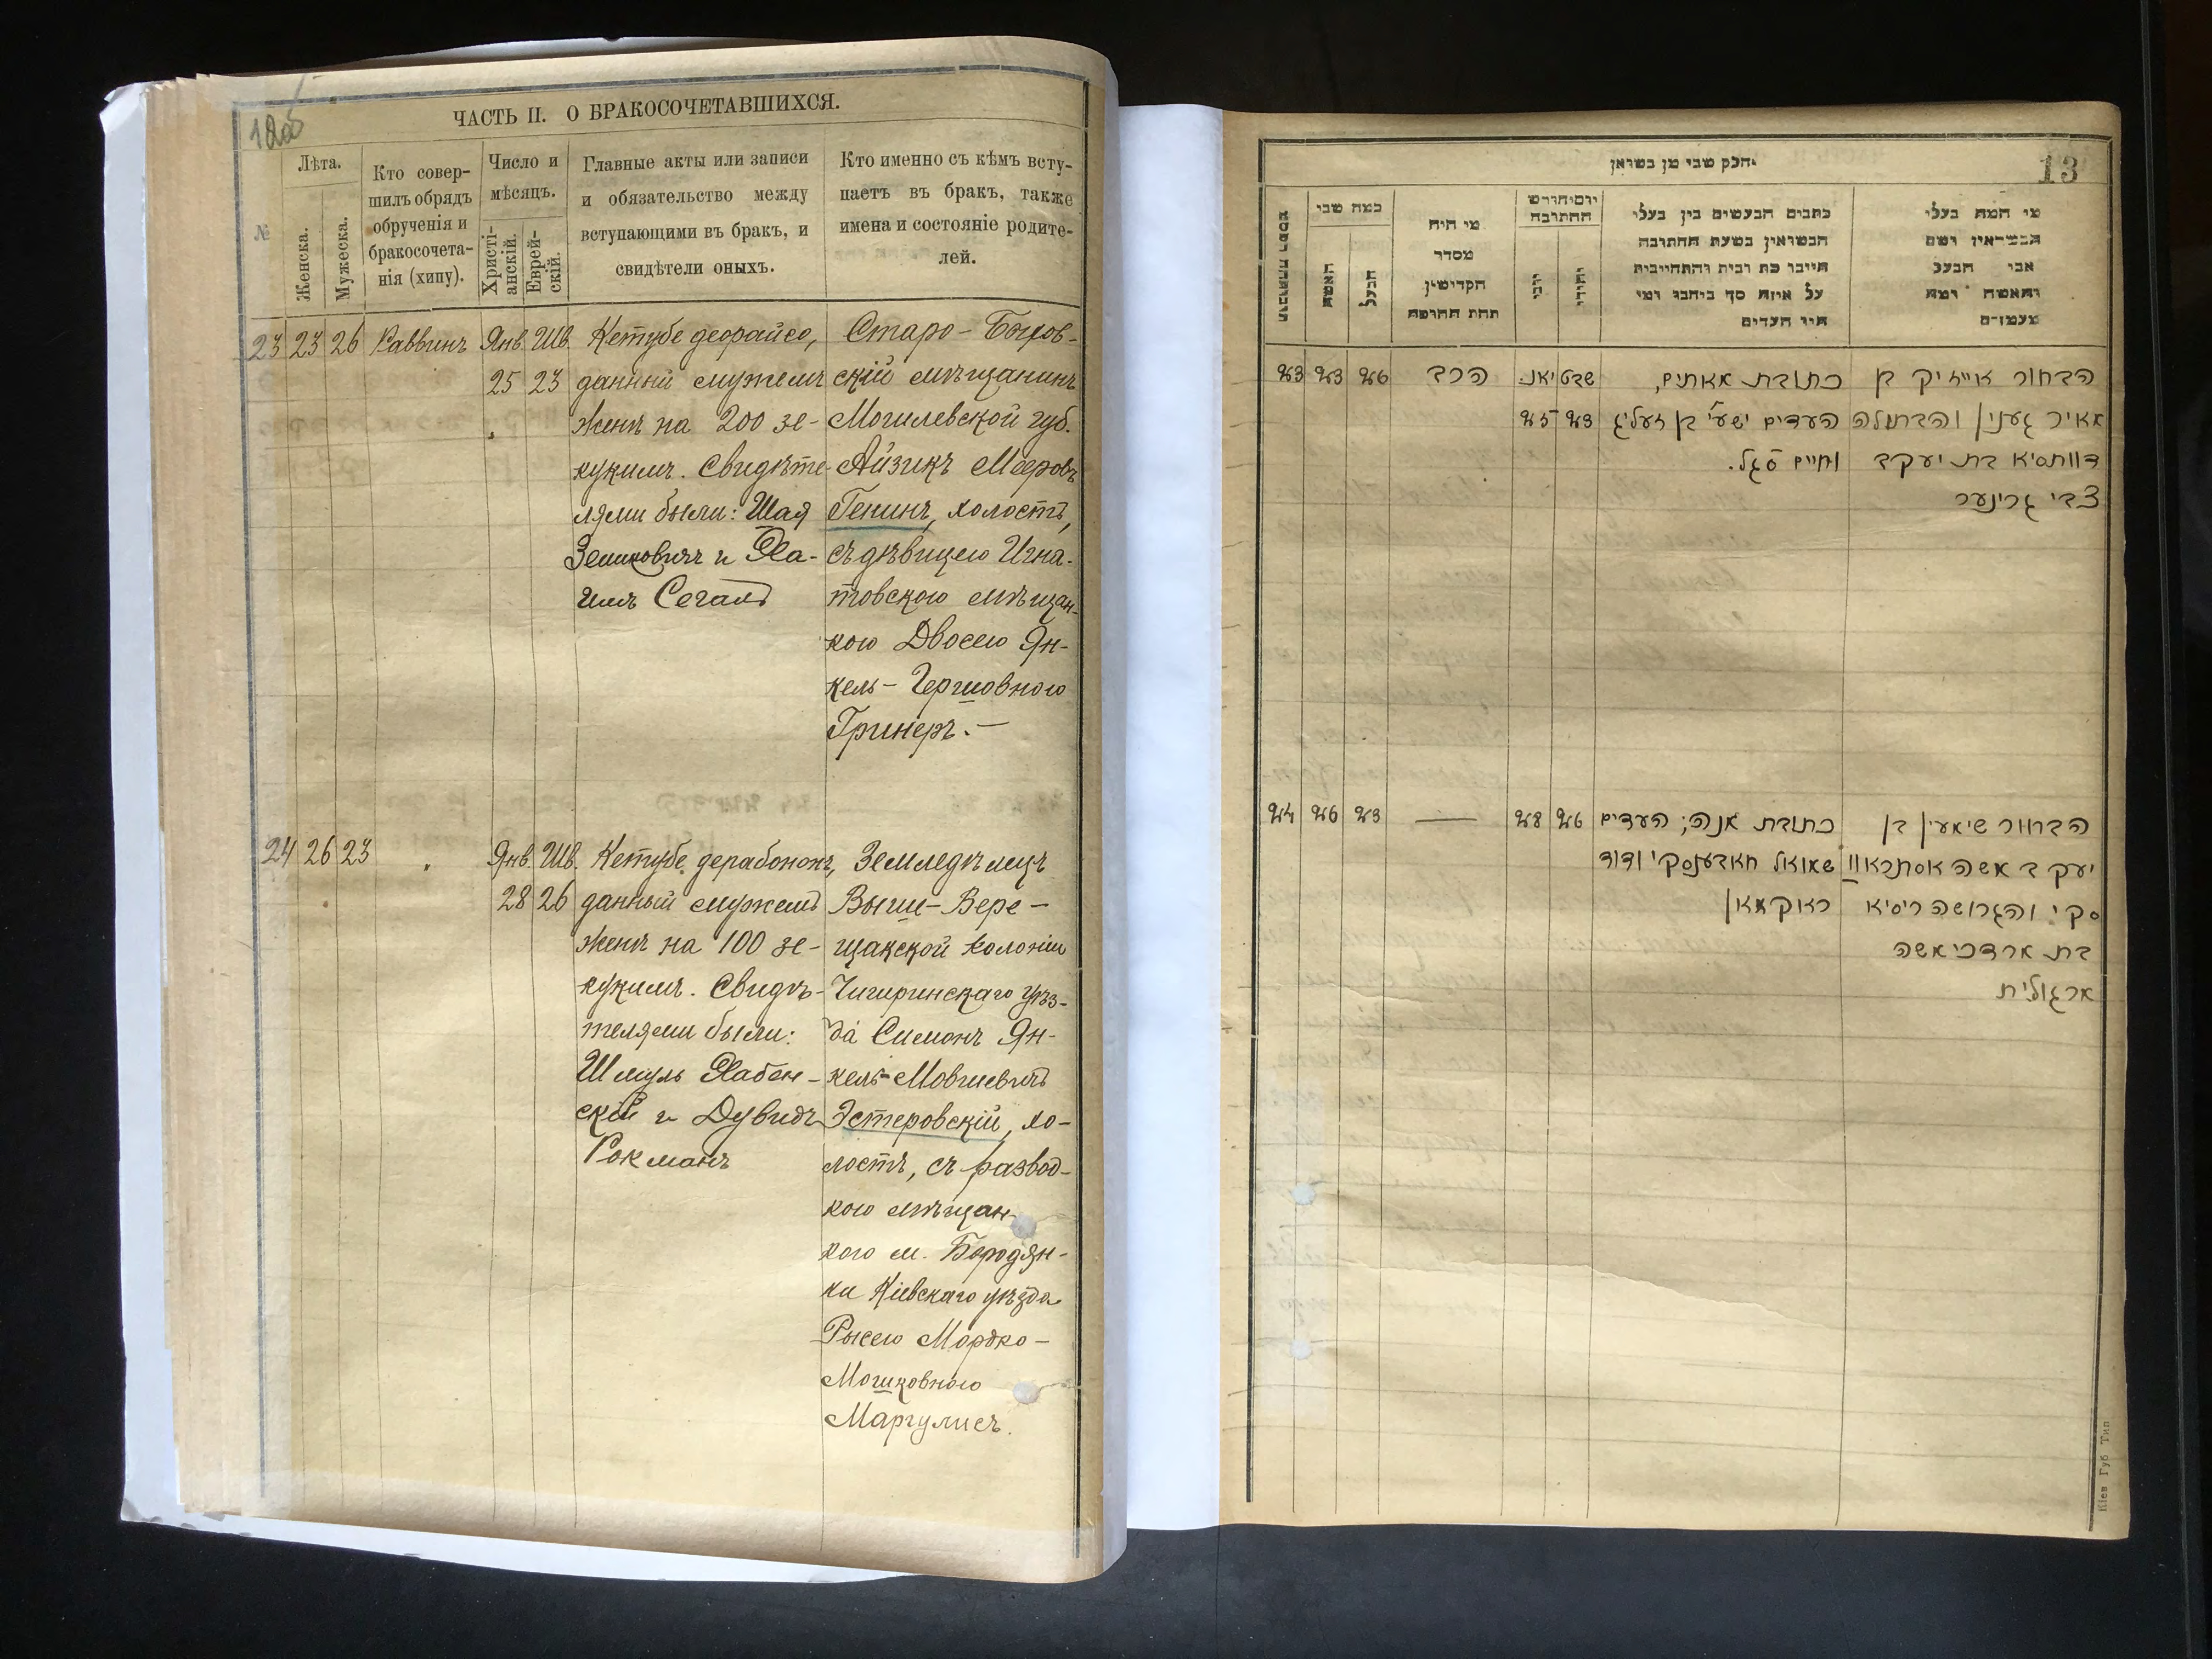 ЧАСТЬ II. О БРАКОСОЧЕТАВШИХСЯ.
№
Лѣта.
Женска.
Мужеска.
Кто совер-
шилъ обрядъ
обрученія и
бракосочета-
нія (хипу).
Число и
мѣсяцъ.
Христі-
анскій.
Еврей-
скій.
Главные акты или записи
и обязательство между
вступающими въ бракъ, и
свидѣтели оныхъ.
Кто именно съ кѣмъ всту-
паетъ въ бракъ, также
имена и состояніе родите-
лей.
23 23 26 Раввинъ Янв. Шв.
25 23
Кетубе деорайсо,
данный мужемъ
женѣ на 200 зе-
кукимъ. Свидѣте-
лями были: Шая
Зеликовичъ и Ха-
имъ Сегалъ
Старо-Быхов-
скій мѣщанинъ
Могилевской губ.
Айзикъ Мееровъ
Генинъ, холостъ,
съ дѣвицею Игна-
товскою мѣщан-
кою Двосею Ян-
кель-Гершовною
Гринеръ.—
24 26 23 " Янв. Шв.
28 26
Кетубе дерабононъ,
данный мужемъ
женѣ на 100 зе-
кукимъ. Свидѣ-
телями были:
Шмуль Хабен-
скій и Дувидъ
Рокманъ
Земледѣлецъ
Выше-Вере-
щакской колоніи
Чигиринскаго уѣз-
да Симонъ Ян-
кель-Мовшевичъ
Эстеровскій, хо-
лостъ, съ развод-
кою мѣщан-
кою м. Бородян-
ки Кіевскаго уѣзда
Рысею Мордко-
Мошковною
Маргулисъ.
חלק שני מן נשואין.
13
מי המה בעלי
הנשואין ושם
אבי הבעל
והאשה ומה
מעמדם
כתבים הנעשים בין בעלי
הנשואין בשעת החתונה
חייבו כת רבית והתחייבות
על איזה סך ביחבו ומי
היו העדים
יום וחודש
החתונה
יהודי
מי היה
מסדר
הקדישין
תחת החופה
כמה שני
הבעל
האשה
הבחור אייזיק בן
מאיר גענין והבתולה
דוואסיא בת יעקב
צבי גרינער
כתובת מאתים,
העדים ישעי' בן זעליג
וחיים סגל.
שבט יאנ.
23 25
הרב
26 23 23
הבחור שימעין בן
יעקב משה אסתראוו
סקי והגרושה ריסיא
בת מרדכי משה
מרגולית
כתובת מנה; העדים
שמואל חאבענסקי ודוד
ראקמאן
26 28
—
23 26 24
Кіев Губ Тип